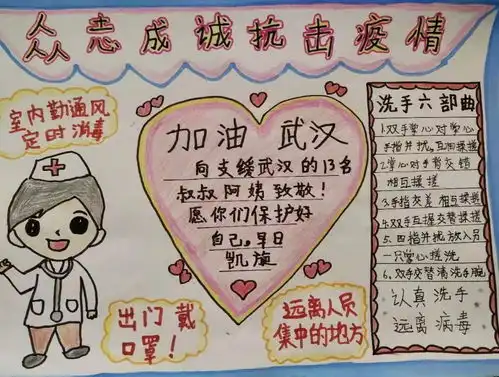 众志成诚抗击疫情
室内勤通风
定时消毒
加油 武汉
向支缓武汉的13名
叔叔阿姨致敬！
愿你们保护好
自己，早日
凯旋
出门戴
口罩！
远离人员
集中的地方
洗手六部曲
1.双手掌心对掌心
手指并扰，互相揉搓
2.掌心对手背交错
相互揉搓
3.手指交差相互揉搓
4.双手互握交替揉搓
5.四指并扰放入另
一只掌心搓洗
6.双手交替清洗手腕
认真洗手
远离病毒